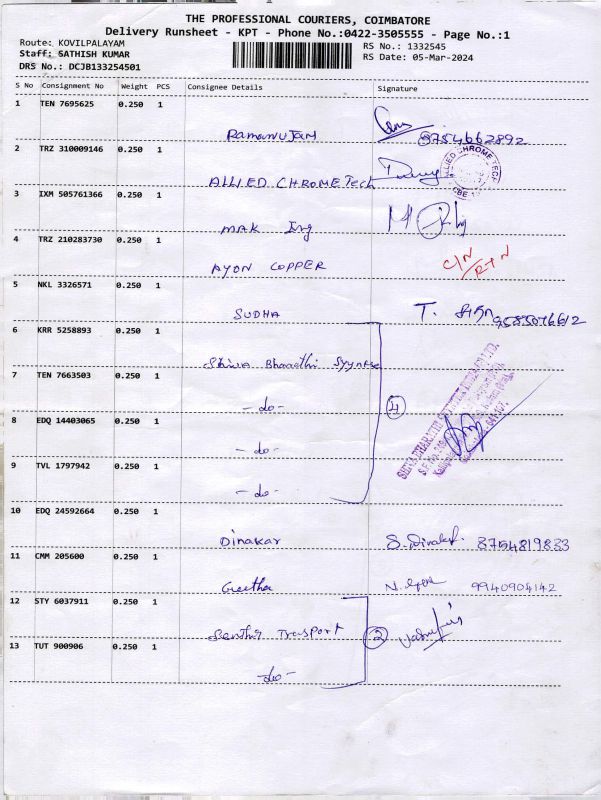 THE PROFESSIONAL COURIERS, COIMBATORE
Delivery Runsheet - KPT - Phone No.:0422-3505555 - Page No.:1
Route: KOVILPALAYAM RS No.: 1332545
Staff: SATHISH KUMAR RS Date: 05-Mar-2024
DRS No.: DCJB133254501
S No Consignment No Weight PCS Consignee Details Signature
1 TEN 7695625 0.250 1
Ramanujam 8754662892
2 TRZ 310009146 0.250 1
ALLIED CHROME Tech ALLIED CHROME TECH CBE
3 IXM 505761366 0.250 1
MAK Ing
4 TRZ 210283730 0.250 1
AYON COPPER C/N RTN
5 NKL 3326571 0.250 1
SUDHA T. சுதா 9585076612
6 KRR 5258893 0.250 1
Shiva Bharathi
7 TEN 7663503 0.250 1
-do- 4
8 EDQ 14403065 0.250 1
-do-
9 TVL 1797942 0.250 1
-do-
10 EDQ 24592664 0.250 1
Dinakar 8754819833
11 CMM 205600 0.250 1
Geetha 9940904142
12 STY 6037911 0.250 1
Senthir Trasport 2
13 TUT 900906 0.250 1
-do-